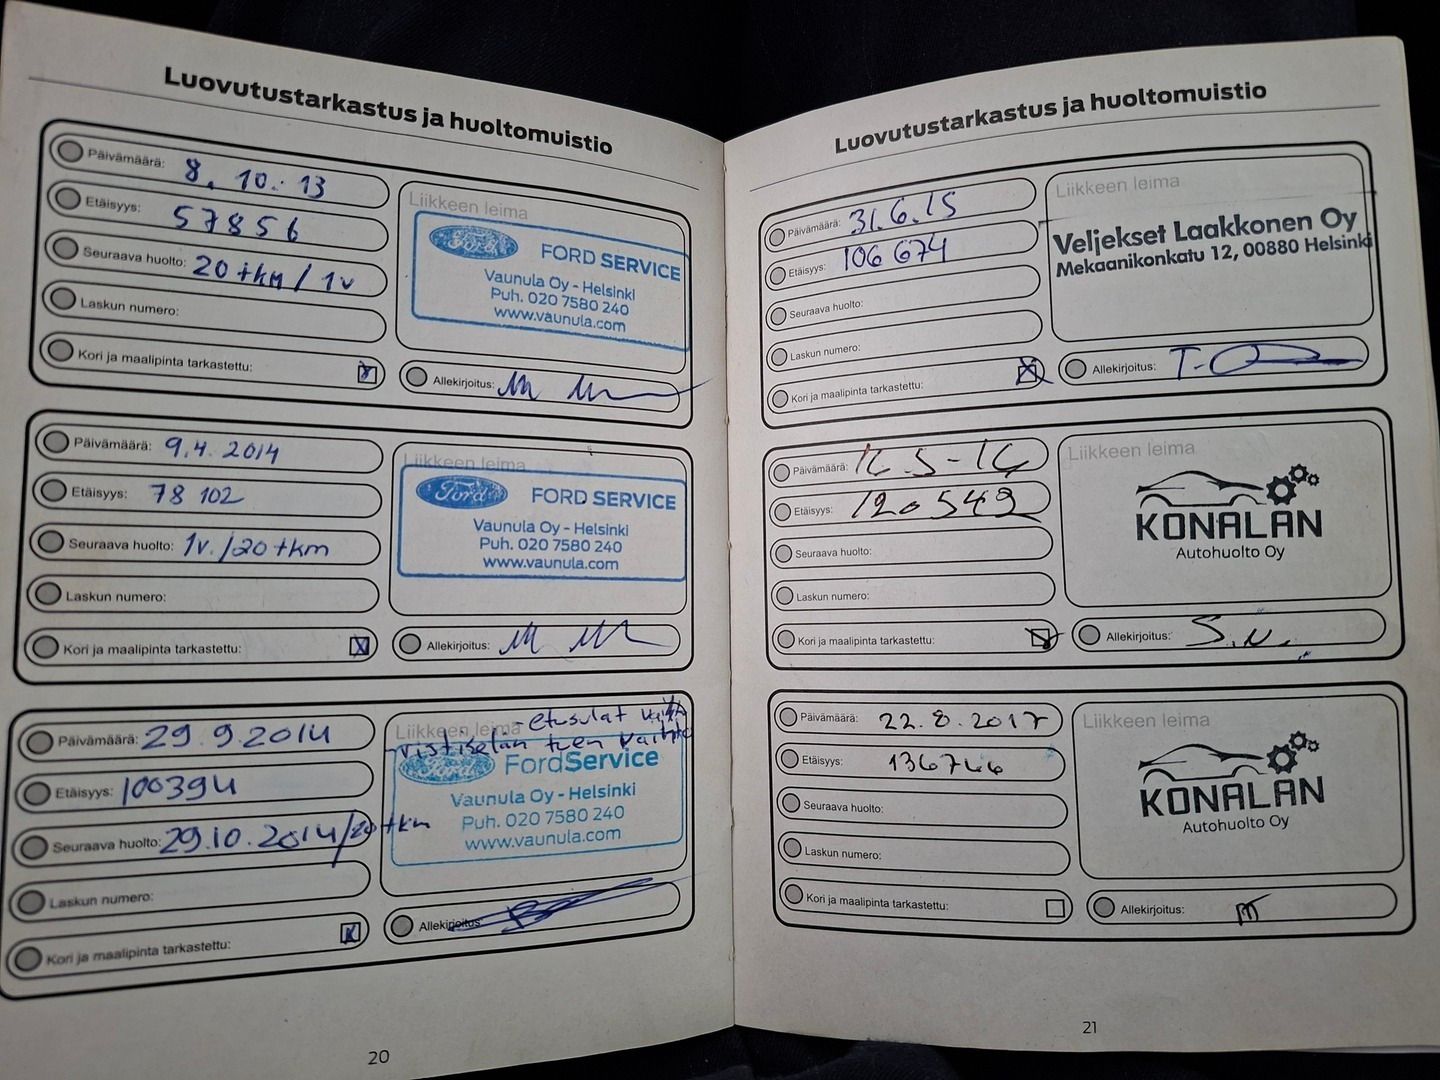 Luovutustarkastus ja huoltomuistio
Päivämäärä: 8. 10. 13
Etäisyys: 57856
Seuraava huolto: 20 tkm / 1v
Laskun numero:
Kori ja maalipinta tarkastettu:
Liikkeen leima
Ford
FORD SERVICE
Vaunula Oy - Helsinki
Puh. 020 7580 240
www.vaunula.com
Allekirjoitus:
Päivämäärä: 9.4. 2014
Etäisyys: 78 102
Seuraava huolto: 1v. /20 tkm
Laskun numero:
Kori ja maalipinta tarkastettu:
Liikkeen leima
Ford
FORD SERVICE
Vaunula Oy - Helsinki
Puh. 020 7580 240
www.vaunula.com
Allekirjoitus:
Päivämäärä: 29.9.2014
Etäisyys: 100394
Seuraava huolto: 29.10.2014/20 tkm
Laskun numero:
Kori ja maalipinta tarkastettu:
Liikkeen leima
- etusulat
tuen vaihto
Ford
FordService
Vaunula Oy - Helsinki
Puh. 020 7580 240
www.vaunula.com
Allekirjoitus:
20
Luovutustarkastus ja huoltomuistio
Päivämäärä: 31.6.15
Etäisyys: 106 674
Seuraava huolto:
Laskun numero:
Kori ja maalipinta tarkastettu:
Liikkeen leima
Veljekset Laakkonen Oy
Mekaanikonkatu 12, 00880 Helsinki
Allekirjoitus:
Päivämäärä:
Etäisyys: 120549
Seuraava huolto:
Laskun numero:
Kori ja maalipinta tarkastettu:
Liikkeen leima
KONALAN
Autohuolto Oy
Allekirjoitus:
Päivämäärä: 22.8.2017
Etäisyys: 136746
Seuraava huolto:
Laskun numero:
Kori ja maalipinta tarkastettu:
Liikkeen leima
KONALAN
Autohuolto Oy
Allekirjoitus:
21